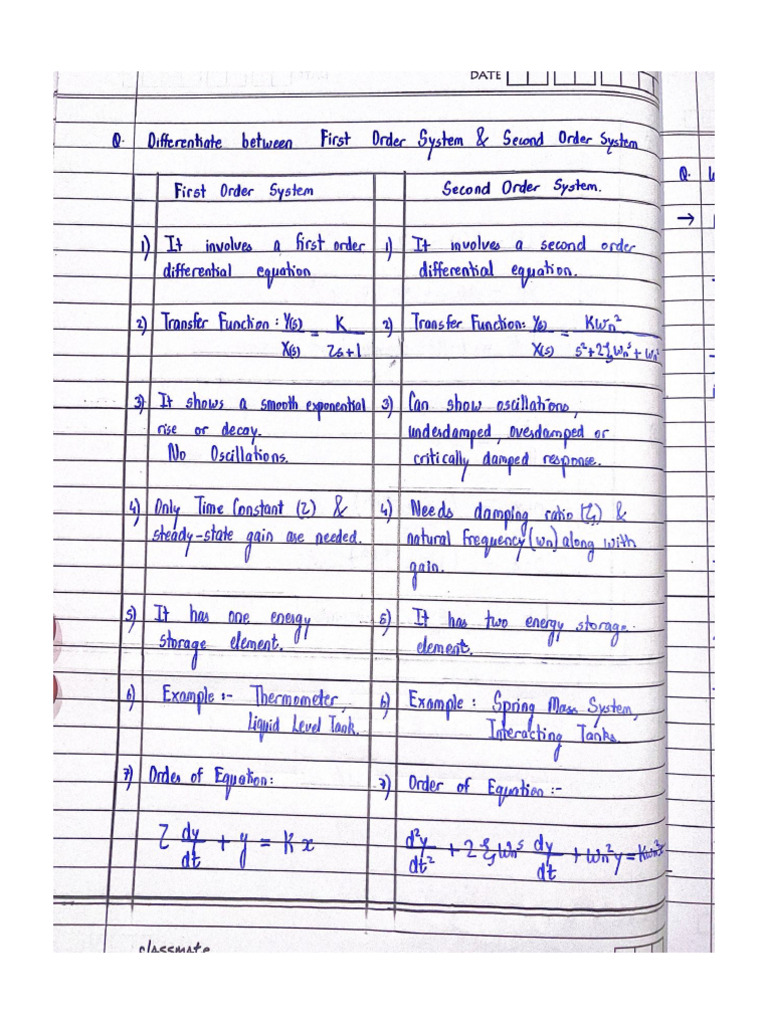 DATE
Q. Differentiate between First Order System & Second Order System
First Order System
Second Order System.
1) It involves a first order
differential equation
1) It involves a second order
differential equation.
2) Transfer Function: Y(s)/X(s) = K/τs+1
2) Transfer Function: Y(s)/X(s) = Kωn²/s²+2ξωns+ωn²
3) It shows a smooth exponential
rise or decay.
No Oscillations.
3) Can show oscillations,
underdamped, overdamped or
critically damped response.
4) Only Time Constant (τ) &
steady-state gain are needed.
4) Needs damping ratio (ξ) &
natural frequency (ωn) along with
gain.
5) It has one energy
storage element.
5) It has two energy storage
element.
6) Example :- Thermometer,
Liquid Level Tank.
6) Example : Spring Mass System,
Interacting Tanks.
7) Order of Equation:
τ dy/dt + y = Kx
7) Order of Equation :-
d²y/dt² + 2ξωns dy/dt + ωn²y = Kωn²x
Q.
→
classmate